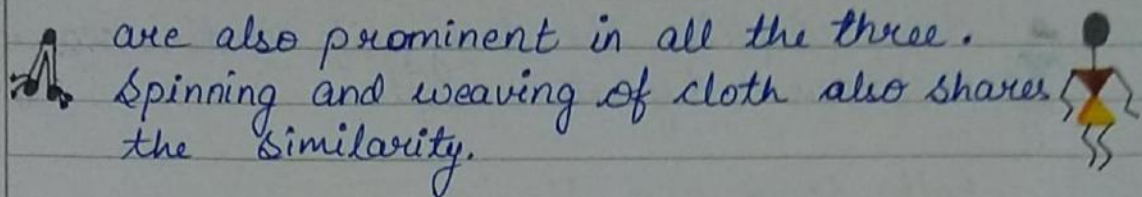 are also prominent in all the three.
Spinning and weaving of cloth also shares
the similarity.